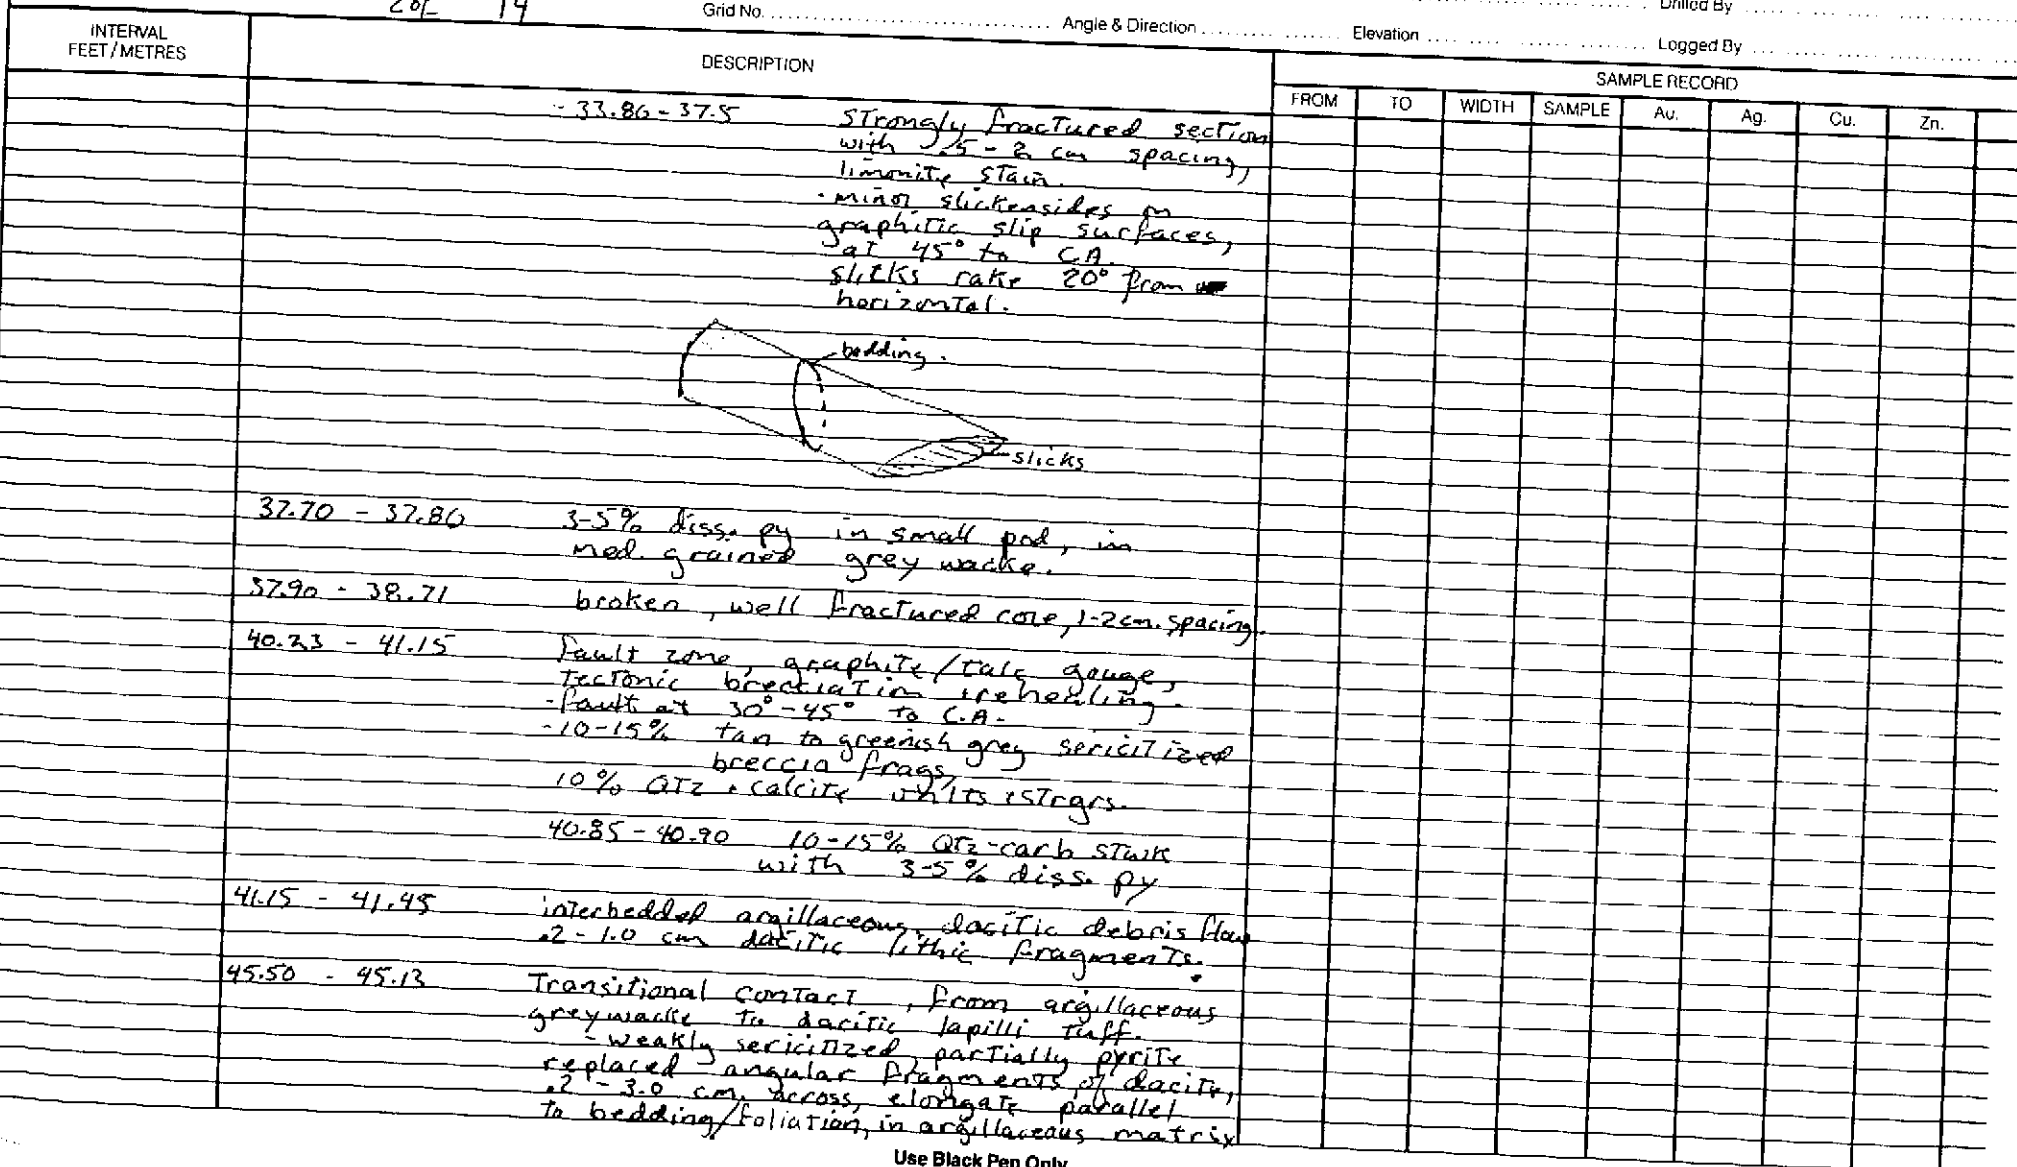 2 of 14
Grid No. Angle & Direction Elevation Drilled By
Logged By
INTERVAL
FEET/METRES
DESCRIPTION
SAMPLE RECORD
FROM TO WIDTH SAMPLE Au. Ag. Cu. Zn.
- 33.86 - 37.5 strongly fractured section
with .5 - 2 cm spacing,
limonite stain.
- minor slickensides on
graphitic slip surfaces,
at 45° to C.A.
slicks rake 20° from
horizontal.
bedding.
slicks
37.70 - 37.80 3-5% diss. py in small pod, in
med. grained grey wacke.
37.90 - 38.71 broken, well fractured core, 1-2cm. spacing.
40.23 - 41.15 fault zone, graphite/talc gouge,
tectonic brecciation + rehealing.
- fault at 30°-45° to C.A.
- 10-15% tan to greenish grey sericitized
breccia frags,
10% QTZ + calcite + strgrs.
40.85 - 40.90 10-15% QTZ-carb stwk
with 3-5% diss. py
41.15 - 41.45 interbedded argillaceous, dacitic debris flow
.2 - 1.0 cm dacitic lithic fragments.
45.50 - 45.13 Transitional contact, from argillaceous
greywacke to dacitic lapilli tuff.
- weakly sericitized, partially pyrite
replaced angular fragments of dacite,
.2 - 3.0 cm. across, elongate parallel
to bedding/foliation, in argillaceous matrix
Use Black Pen Only